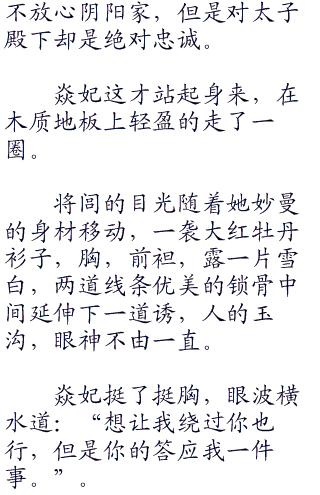 不放心阴阳家，但是对太子
殿下却是绝对忠诚。
焱妃这才站起身来，在
木质地板上轻盈的走了一
圈。
将闾的目光随着她妙曼
的身材移动，一袭大红牡丹
衫子，胸，前袒，露一片雪
白，两道线条优美的锁骨中
间延伸下一道诱，人的玉
沟，眼神不由一直。
焱妃挺了挺胸，眼波横
水道：“想让我绕过你也
行，但是你的答应我一件
事。”。